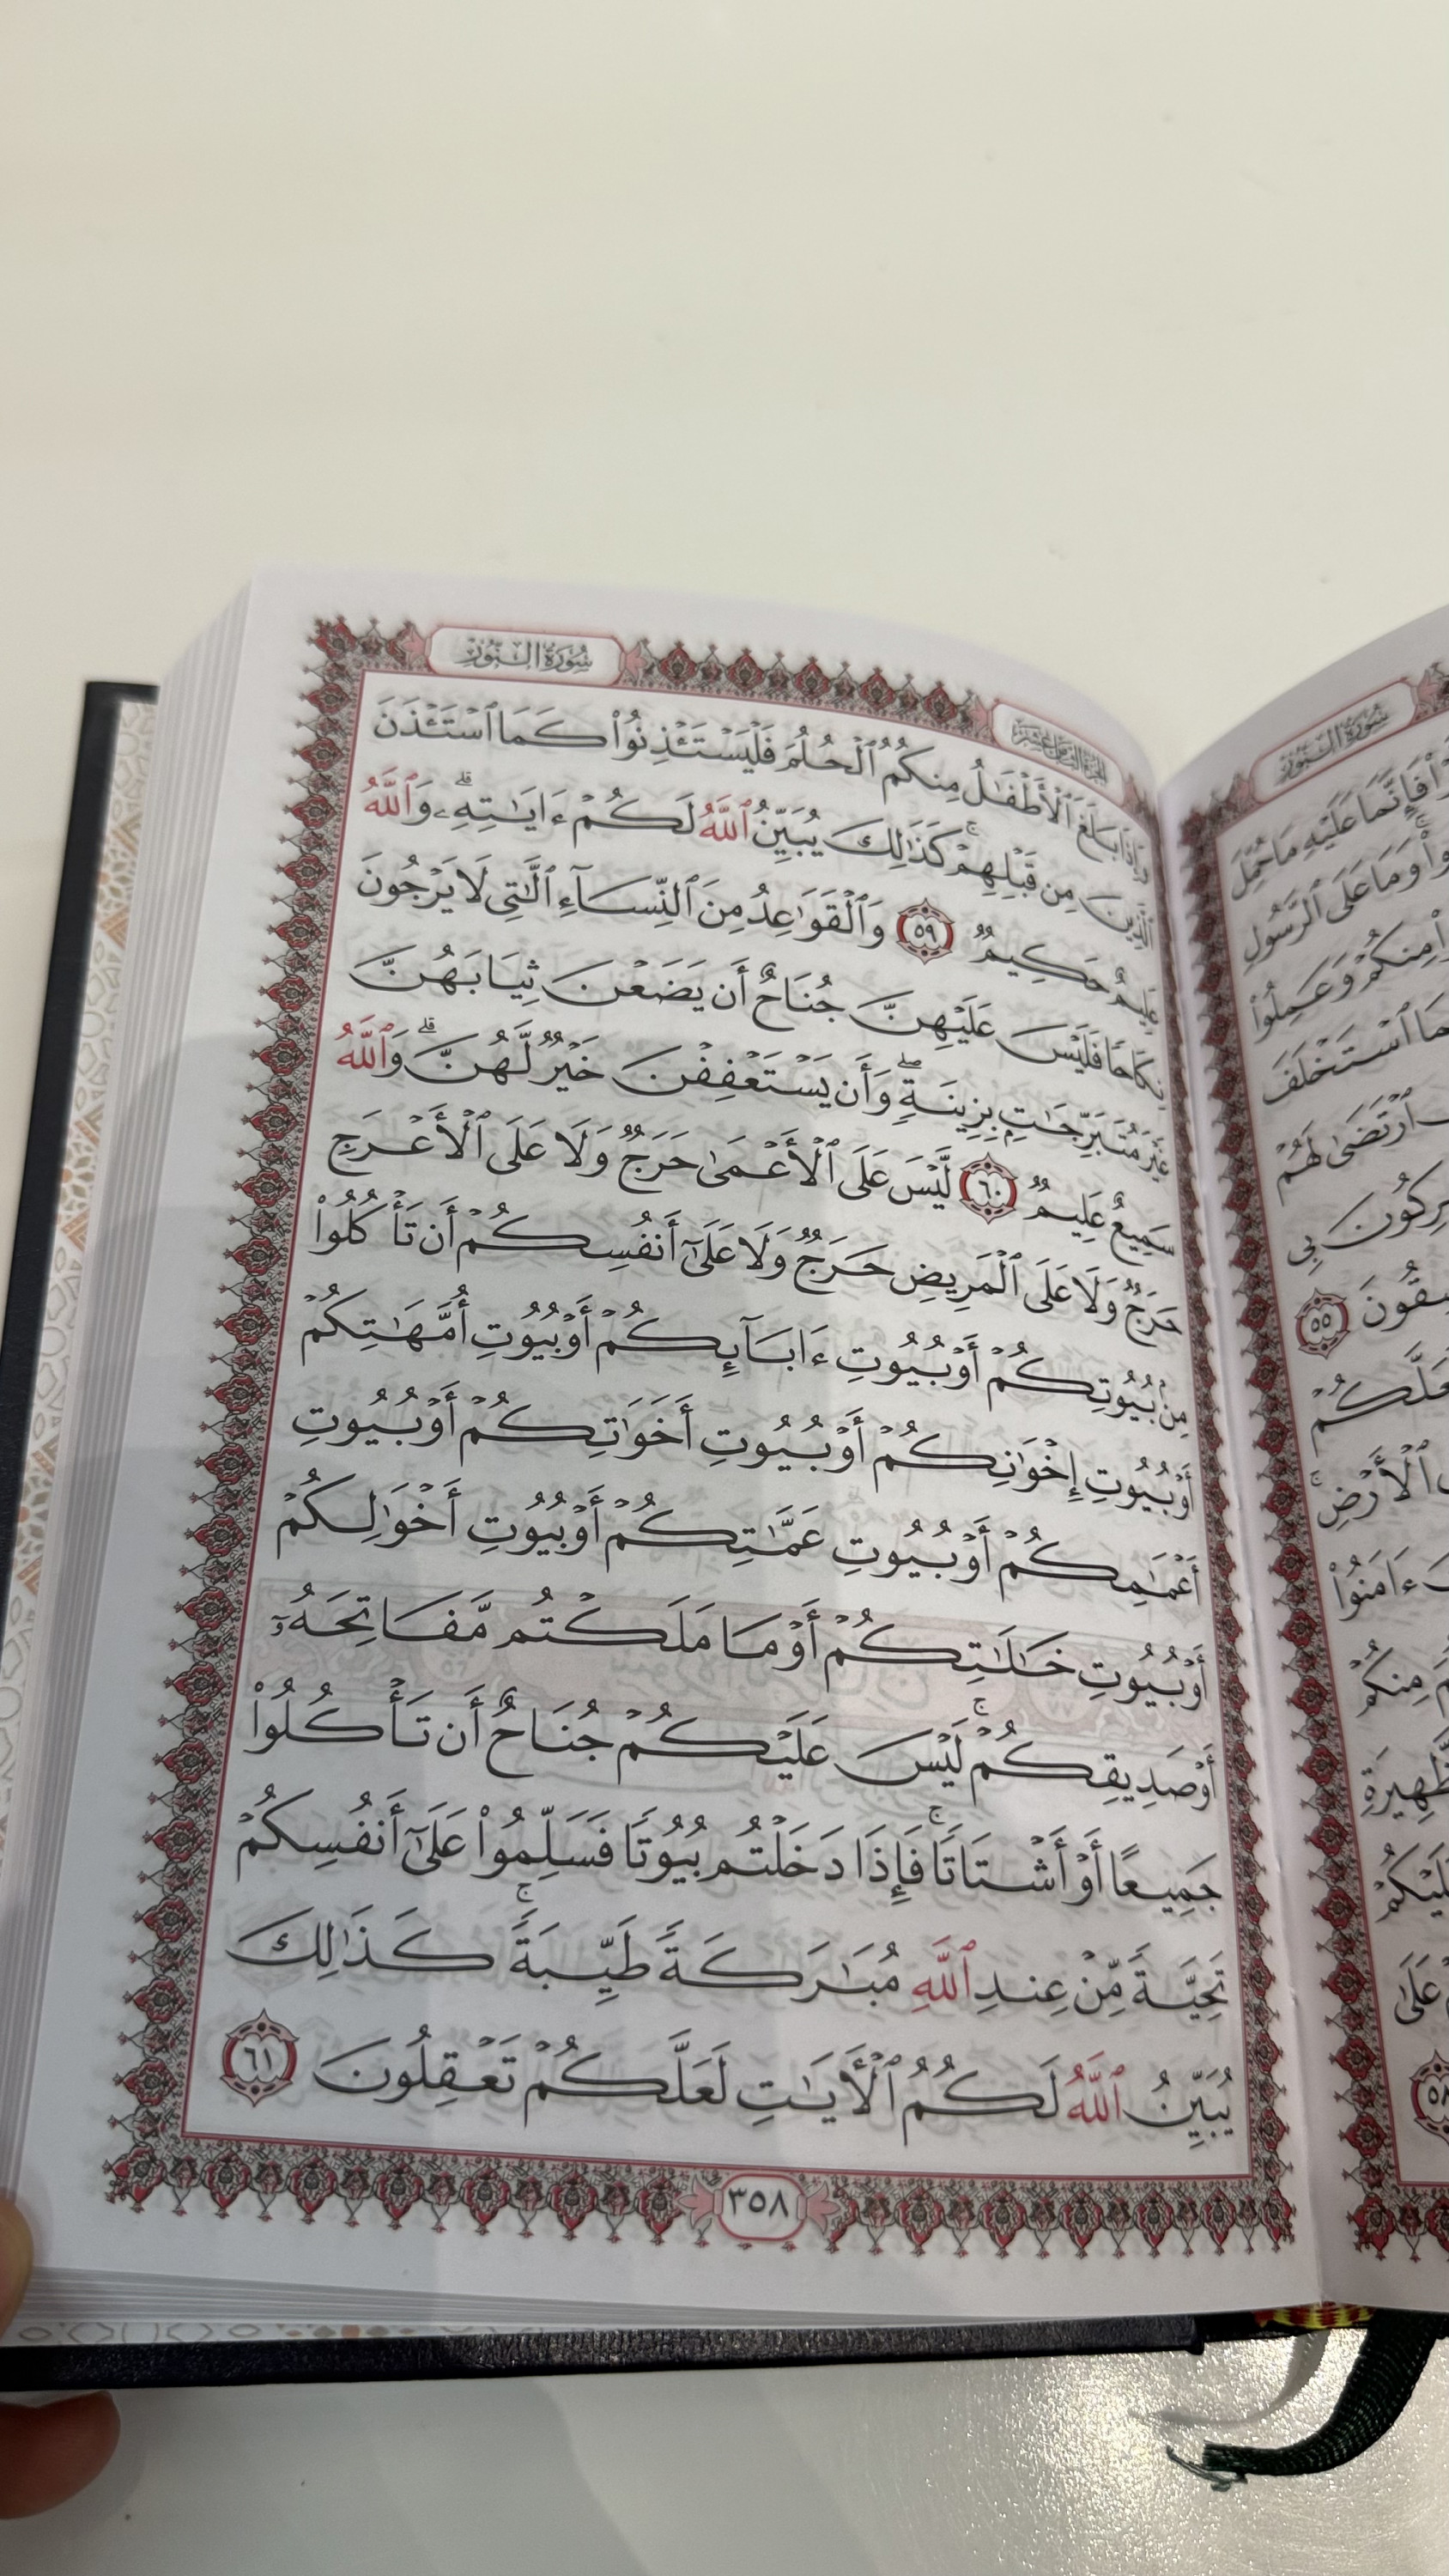 سُورَةُ النُّورِ
الجزء الثامن عشر
وَإِذَا بَلَغَ ٱلْأَطْفَٰلُ مِنكُمُ ٱلْحُلُمَ فَلْيَسْتَـْٔذِنُوا۟ كَمَا ٱسْتَـْٔذَنَ
ٱلَّذِينَ مِن قَبْلِهِمْ ۚ كَذَٰلِكَ يُبَيِّنُ ٱللَّهُ لَكُمْ ءَايَٰتِهِۦ ۗ وَٱللَّهُ
عَلِيمٌ حَكِيمٌ ٥٩ وَٱلْقَوَٰعِدُ مِنَ ٱلنِّسَآءِ ٱلَّٰتِى لَا يَرْجُونَ
نِكَاحًا فَلَيْسَ عَلَيْهِنَّ جُنَاحٌ أَن يَضَعْنَ ثِيَابَهُنَّ
غَيْرَ مُتَبَرِّجَٰتٍۭ بِزِينَةٍ ۖ وَأَن يَسْتَعْفِفْنَ خَيْرٌ لَّهُنَّ ۗ وَٱللَّهُ
سَمِيعٌ عَلِيمٌ ٦٠ لَّيْسَ عَلَى ٱلْأَعْمَىٰ حَرَجٌ وَلَا عَلَى ٱلْأَعْرَجِ
حَرَجٌ وَلَا عَلَى ٱلْمَرِيضِ حَرَجٌ وَلَا عَلَىٰٓ أَنفُسِكُمْ أَن تَأْكُلُوا۟
مِنۢ بُيُوتِكُمْ أَوْ بُيُوتِ ءَابَآئِكُمْ أَوْ بُيُوتِ أُمَّهَٰتِكُمْ
أَوْ بُيُوتِ إِخْوَٰنِكُمْ أَوْ بُيُوتِ أَخَوَٰتِكُمْ أَوْ بُيُوتِ
أَعْمَٰمِكُمْ أَوْ بُيُوتِ عَمَّٰتِكُمْ أَوْ بُيُوتِ أَخْوَٰلِكُمْ
أَوْ بُيُوتِ خَٰلَٰتِكُمْ أَوْ مَا مَلَكْتُم مَّفَاتِحَهُۥٓ
أَوْ صَدِيقِكُمْ ۚ لَيْسَ عَلَيْكُمْ جُنَاحٌ أَن تَأْكُلُوا۟
جَمِيعًا أَوْ أَشْتَاتًا ۚ فَإِذَا دَخَلْتُم بُيُوتًا فَسَلِّمُوا۟ عَلَىٰٓ أَنفُسِكُمْ
تَحِيَّةً مِّنْ عِندِ ٱللَّهِ مُبَٰرَكَةً طَيِّبَةً ۚ كَذَٰلِكَ
يُبَيِّنُ ٱللَّهُ لَكُمُ ٱلْءَايَٰتِ لَعَلَّكُمْ تَعْقِلُونَ ٦١
٣٥٨
سُورَةُ النُّورِ
فَإِنَّمَا عَلَيْهِ مَا حُمِّلَ
وَمَا عَلَى ٱلرَّسُولِ
مِنكُمْ وَعَمِلُوا۟
ٱسْتَخْلَفَ
ٱرْتَضَىٰ لَهُمْ
٥٥
ٱلْأَرْضِ ۚ
ءَامَنُوا۟
مِنكُمْ
عَلَىٰ
٥٨